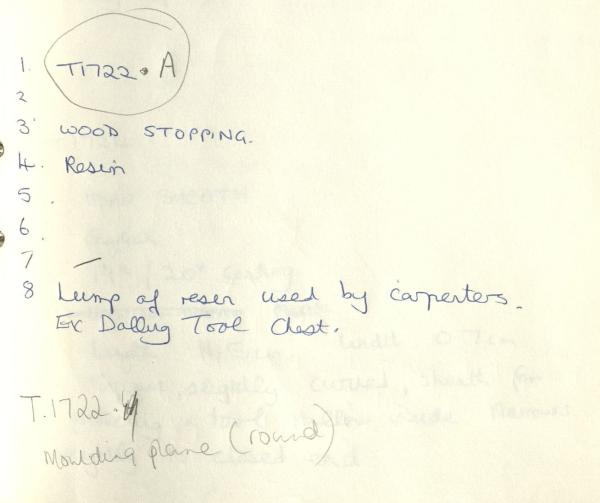 1. T1722. A
2
3 WOOD STOPPING.
4. Resin
5.
6.
7 —
8 Lump of resen used by carpenters.
Ex Dalling Tool Chest.
T.1722.
Moulding plane (round)